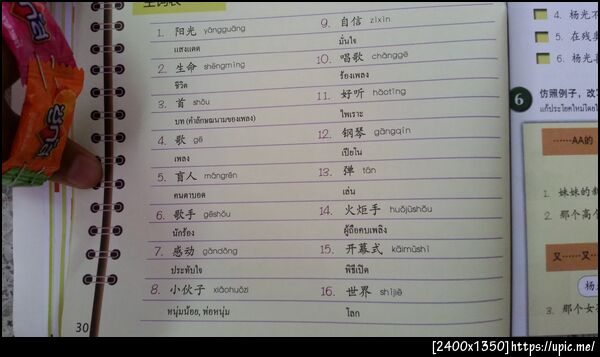 生词表
1. 阳光 yángguāng
แสงแดด
2. 生命 shēngmìng
ชีวิต
3. 首 shǒu
บท (คำลักษณนามของเพลง)
4. 歌 gē
เพลง
5. 盲人 mángrén
คนตาบอด
6. 歌手 gēshǒu
นักร้อง
7. 感动 gǎndòng
ประทับใจ
8. 小伙子 xiǎohuǒzi
หนุ่มน้อย, พ่อหนุ่ม
30
9. 自信 zìxìn
มั่นใจ
10. 唱歌 chànggē
ร้องเพลง
11. 好听 hǎotīng
ไพเราะ
12. 钢琴 gāngqín
เปียโน
13. 弹 tán
เล่น
14. 火炬手 huǒjùshǒu
ผู้ถือคบเพลิง
15. 开幕式 kāimùshì
พิธีเปิด
16. 世界 shìjiè
โลก
4. 杨光不
5. 在残
6. 杨光
6 仿照例子，改
แก้ประโยคใหม่โดย
……AA的
1. 妹妹的
2. 那个高个
又……又…
杨
3. 那个女
[2400x1350]https://upic.me/